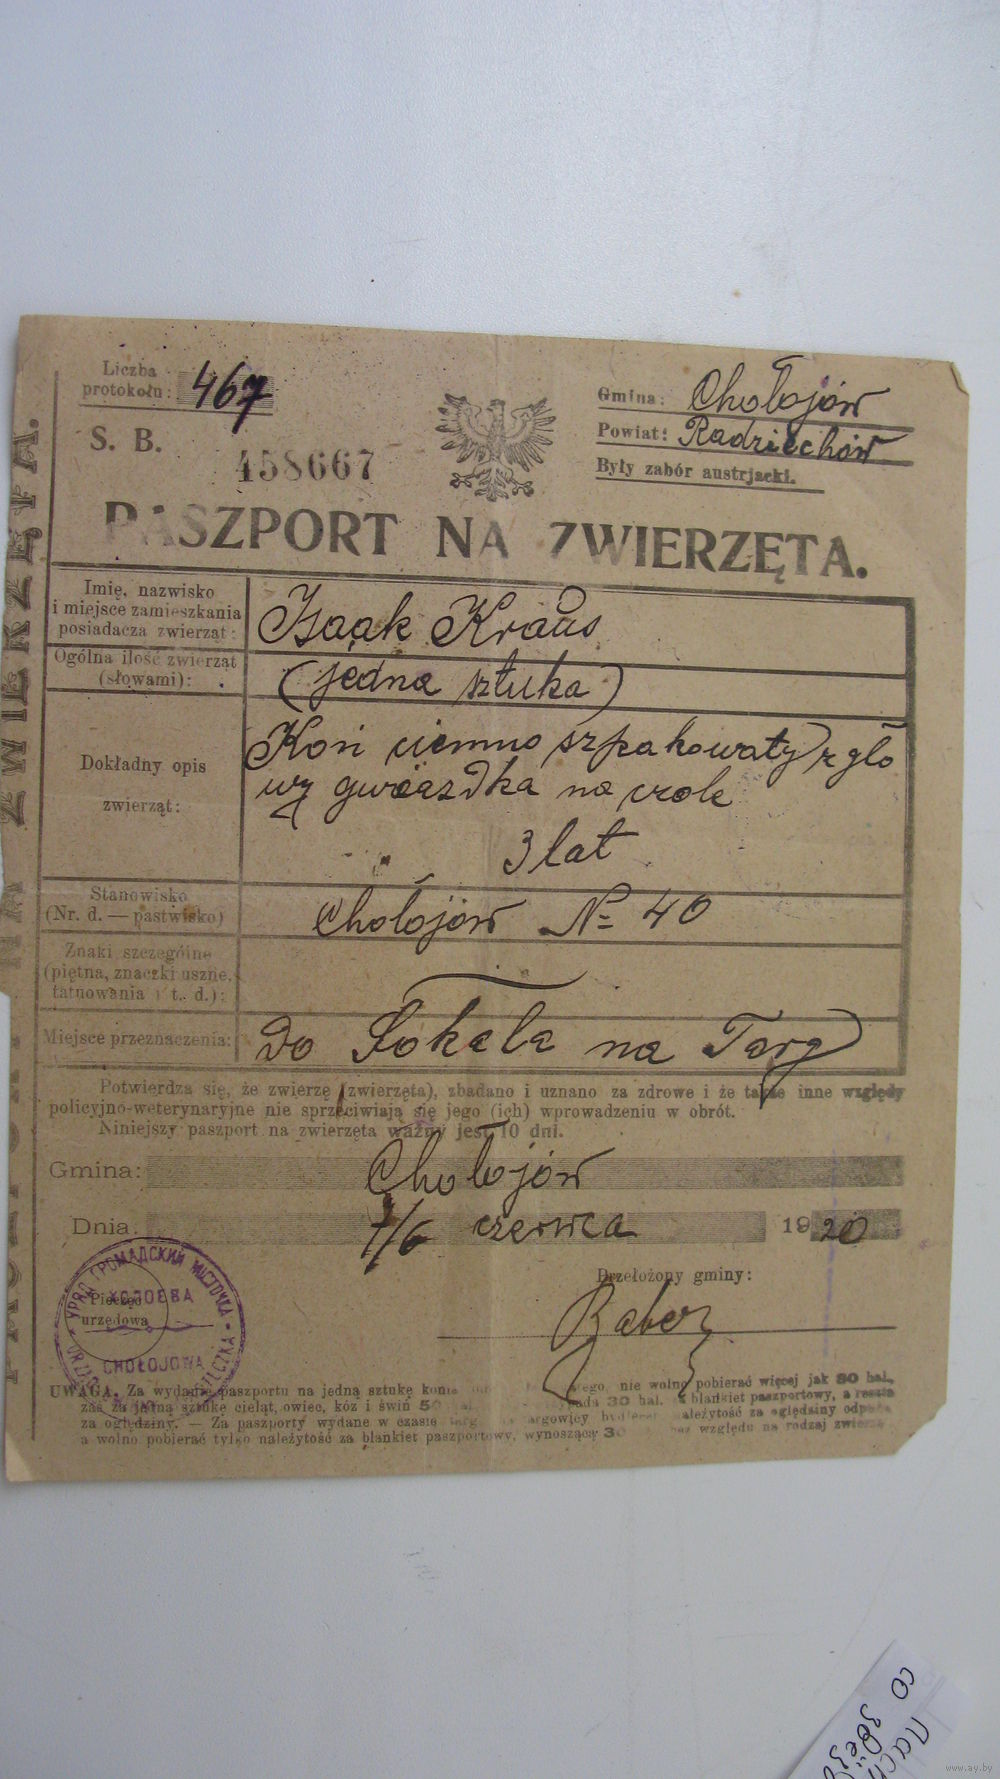 Liczba
protokołu: 467
S. B.
458667
Gmina: Chołojów
Powiat: Radziechów
Były zabór austrjacki.
PASZPORT NA ZWIERZĘTA.
Imię, nazwisko
i miejsce zamieszkania
posiadacza zwierząt:
Isaak Kraus
Ogólna ilość zwierząt
(słowami):
(jedna sztuka)
Dokładny opis
zwierząt:
Koń ciemno szpakowaty z gło
wy gwiazdka na czole
3 lat
Stanowisko
(Nr. d. — pastwisko)
Chołojów № 40
Znaki szczególne
(piętna, znaczki uszne,
tatuowania i t. d.):
Miejsce przeznaczenia:
do Sokala na Targ
Potwierdza się, że zwierzę (zwierzęta), zbadano i uznano za zdrowe i że także inne względy
policyjno-weterynaryjne nie sprzeciwiają się jego (ich) wprowadzeniu w obrót.
Niniejszy paszport na zwierzęta ważny jest 10 dni.
Gmina: Chołojów
Dnia: 1/6 czerwca 1920
Przełożony gminy:
Pieczęć
urzędowa
УРЯД ГРОМАДСКИЙ МІСТОЧКА
ХОЛОЄВА
CHOŁOJOWA
UWAGA. Za wydanie paszportu na jedną sztukę konia nie wolno pobierać więcej jak 80 hal.,
zaś za jedną sztukę cieląt, owiec, kóz i świń 50 30 hal. blankiet paszportowy, a reszta
za oględziny. — Za paszporty wydane w czasie należytość za oględziny
a wolno pobierać tylko należytość za blankiet paszportowy, wynoszącą 30 bez względu na rodzaj zwierząt
NA ZWIERZĘTA.
со
www.ay.by